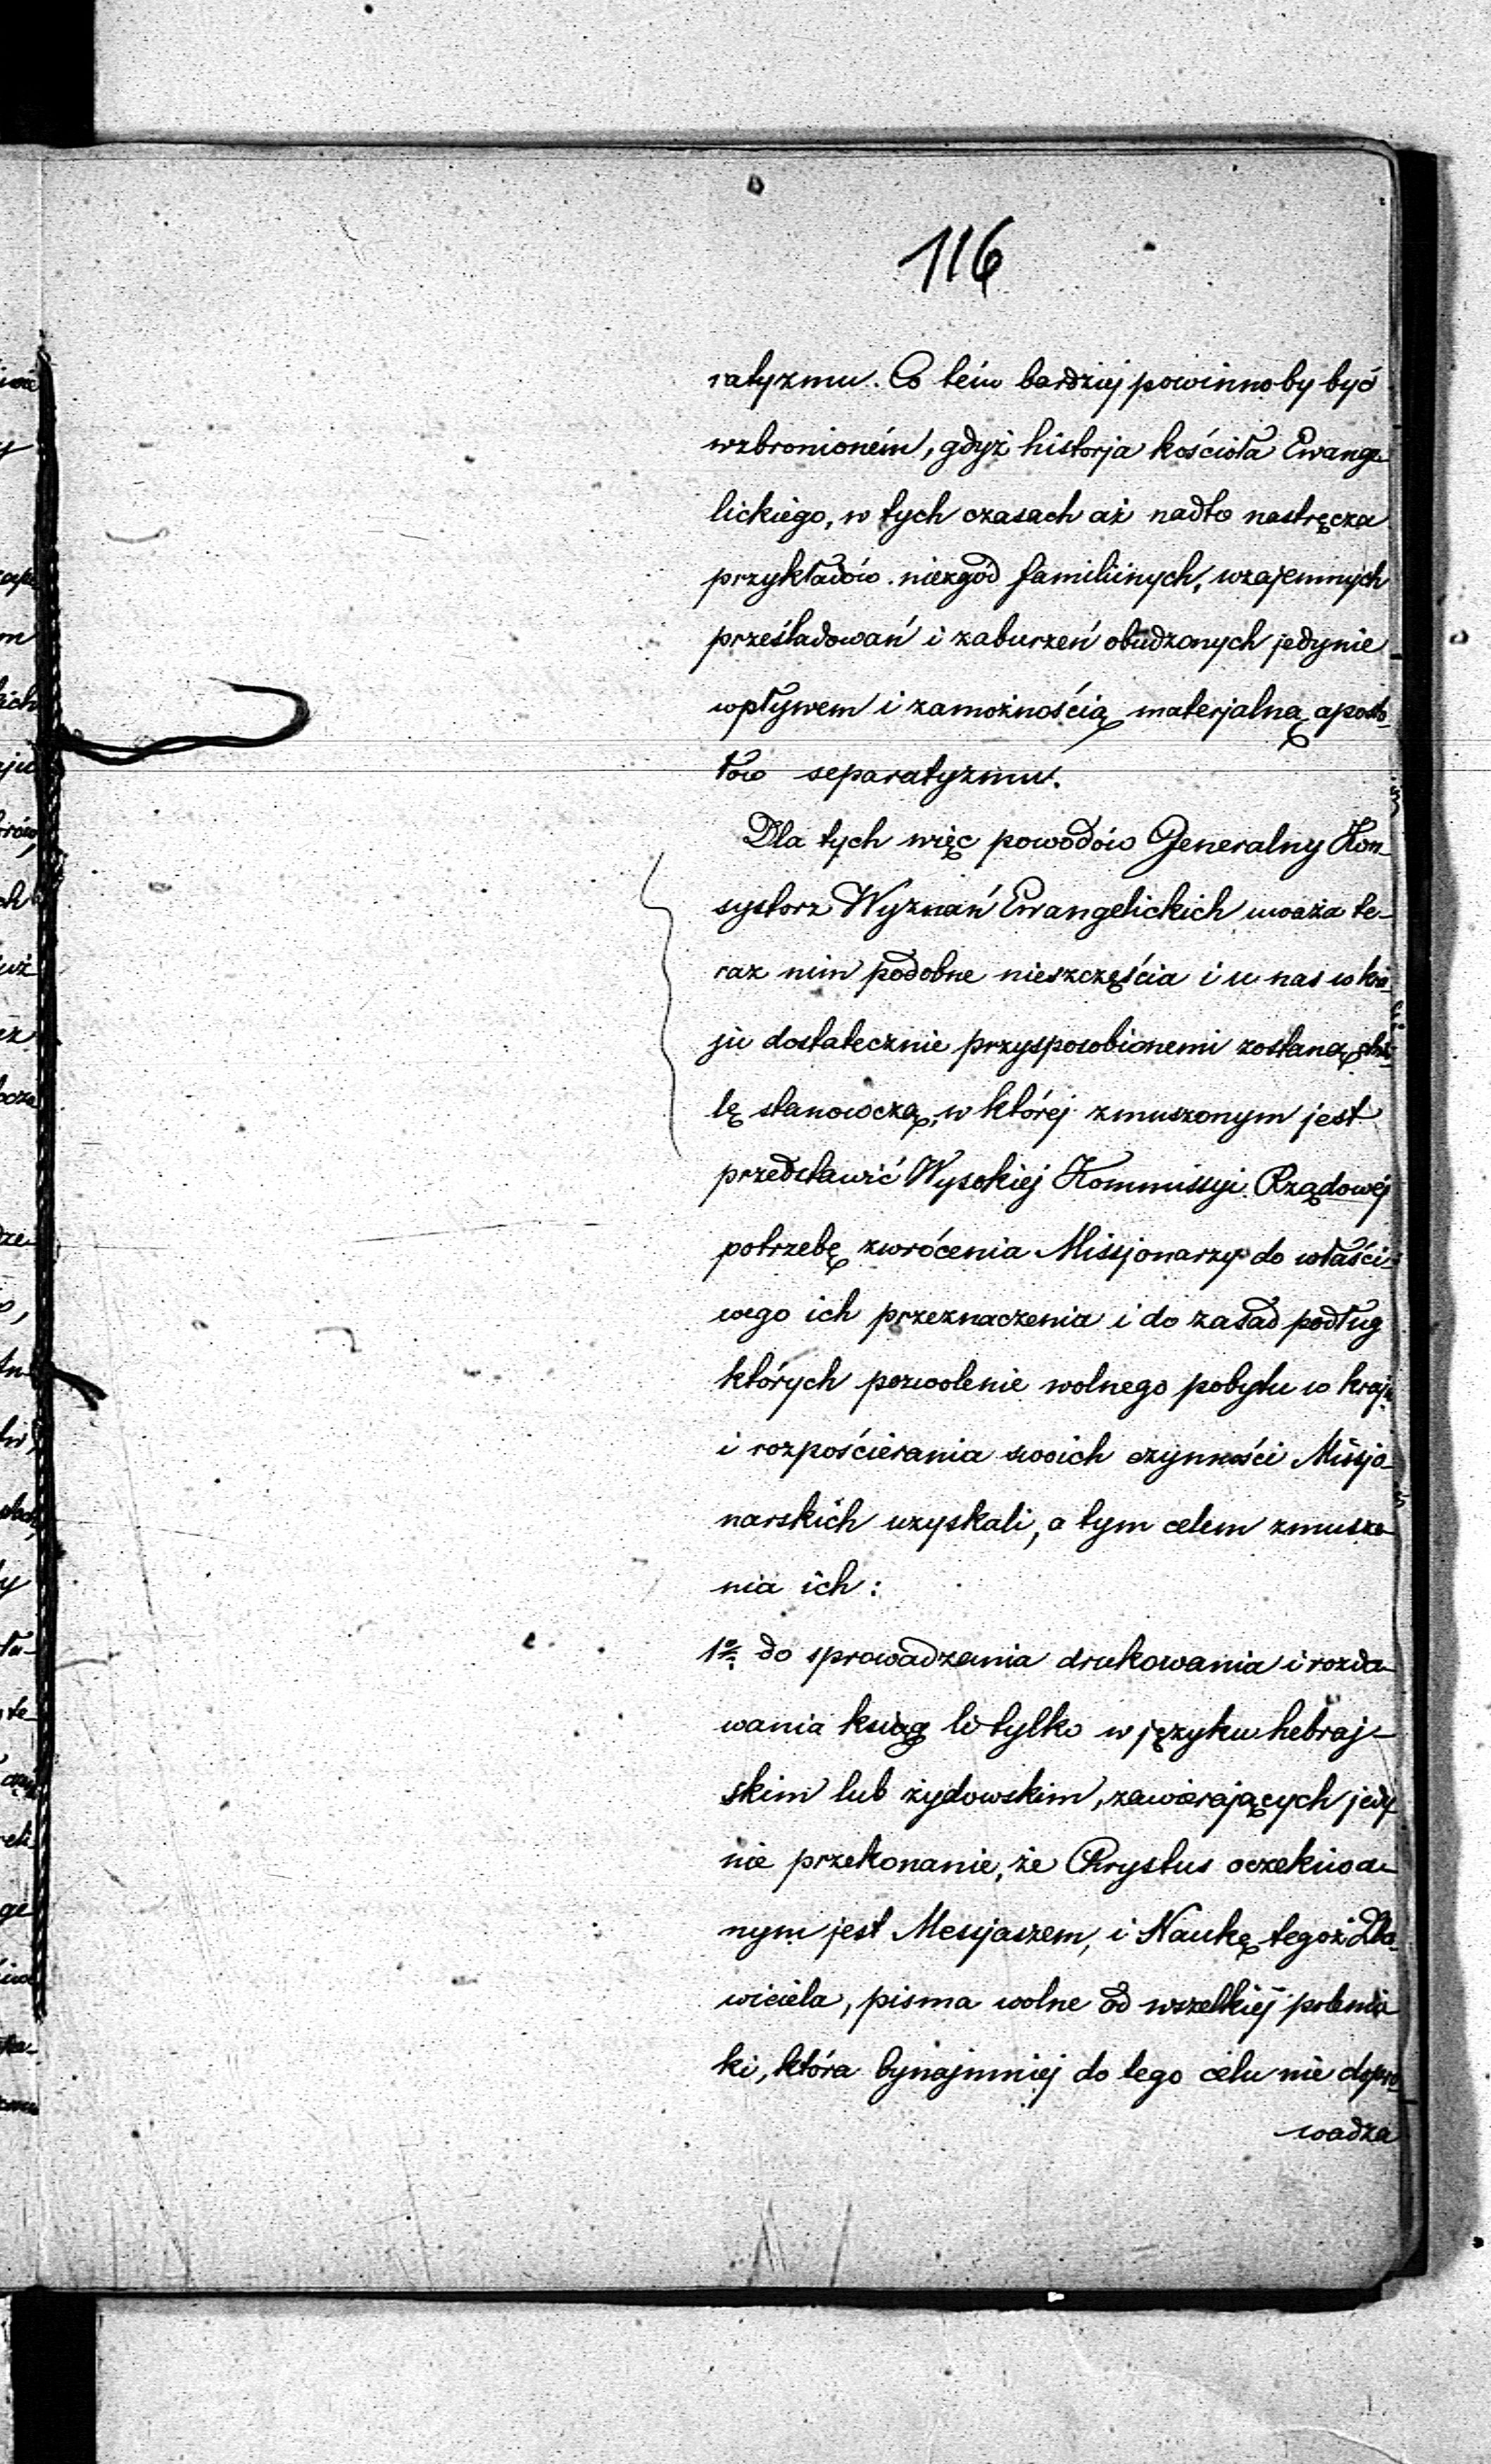 116
ratyzmu. Co tém bardziej powinnoby być
wzbronioném, gdyż historja kościoła Ewange-
lickiego, w tych czasach aż nadto nastręcza
przykładów niezgód familiinych, wzajemnych
prześladowań i zaburzeń obudzanych jedynie
wpływem i zamożnością materjalną aposto-
łów separatyzmu.
Dla tych więc powodów Generalny Kon-
systorz Wyznań Ewangelickich uważa te-
raz nim podobne nieszczęścia i u nas w kra-
ju dostatecznie przysposobionemi zostaną chwi-
lę stanowczą, w której zmuszonym jest
przedstawić Wysokiej Kommissyi Rządowéj
potrzebę zwrócenia Missjonarzy do właści-
wego ich przeznaczenia i do zasad podług
których pozwolenie wolnego pobytu w kraju
i rozpościerania swoich czynności Missjo-
narskich uzyskali, a tym celem zmusze-
nia ich:
1o do sprowadzenia drukowania i rozda-
wania ksiąg li tylko w języku hebraj-
skim lub żydowskim, zawierających jedy-
nie przekonanie, że Chrystus oczekiwa-
nym jest Messjaszem, i Naukę tegoż Zba-
wiciela, pisma wolne od wszelkiéj polemi-
ki, która bynajmniej do tego celu nie dopro-
wadza